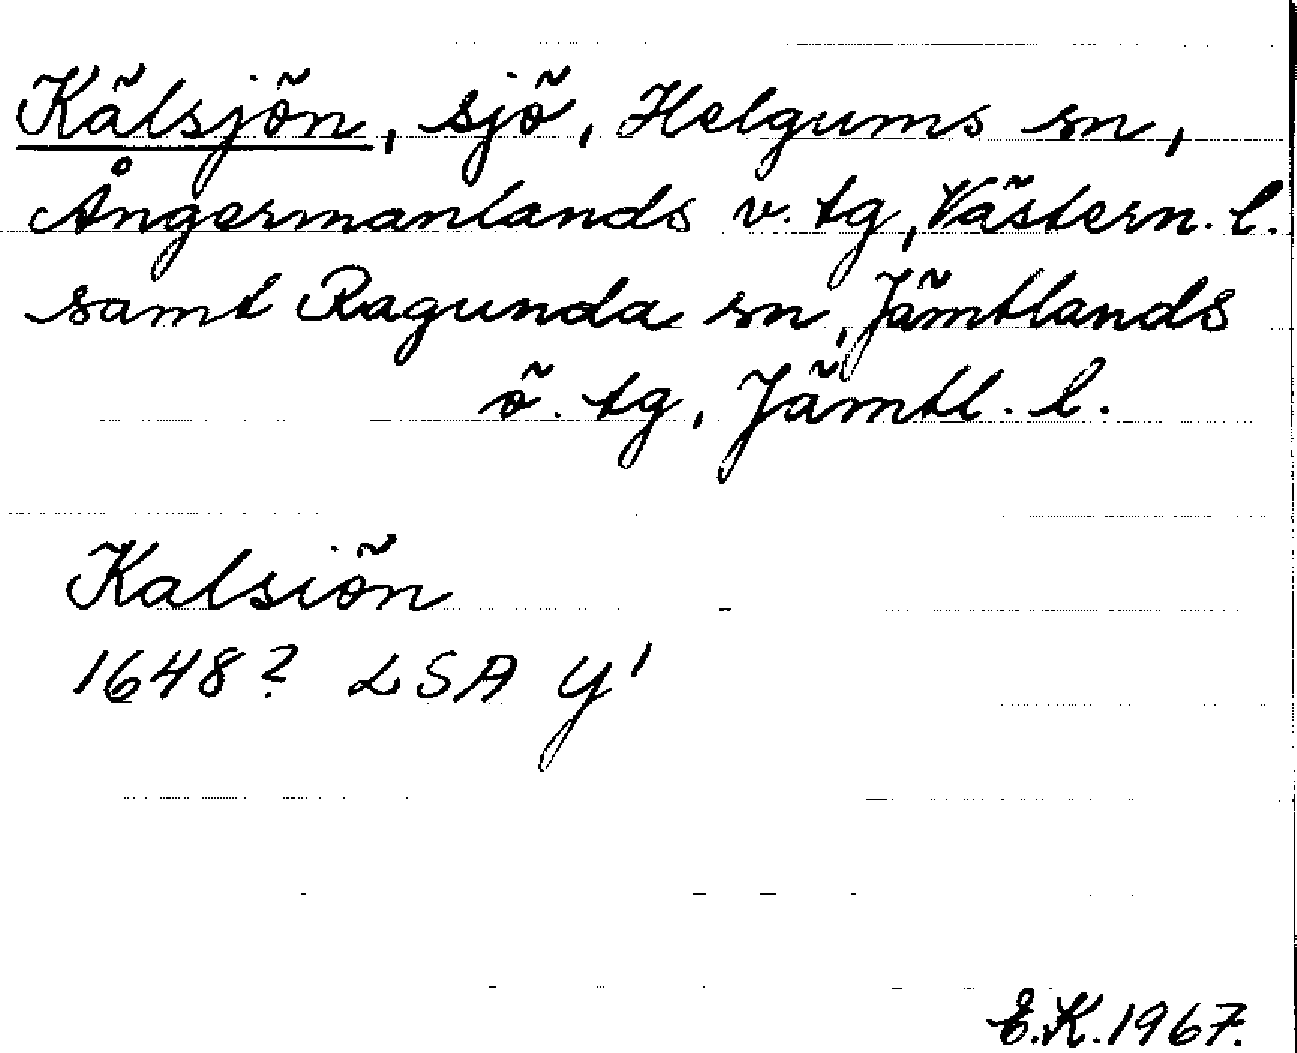 Kälsjön, sjö, Helgums sn,
Ångermanlands v. tg, Västern. l.
samt Ragunda sn, Jämtlands
ö. tg, Jämtl. l.
Kalsiön
1648? LSA Y'
E.K. 1967.